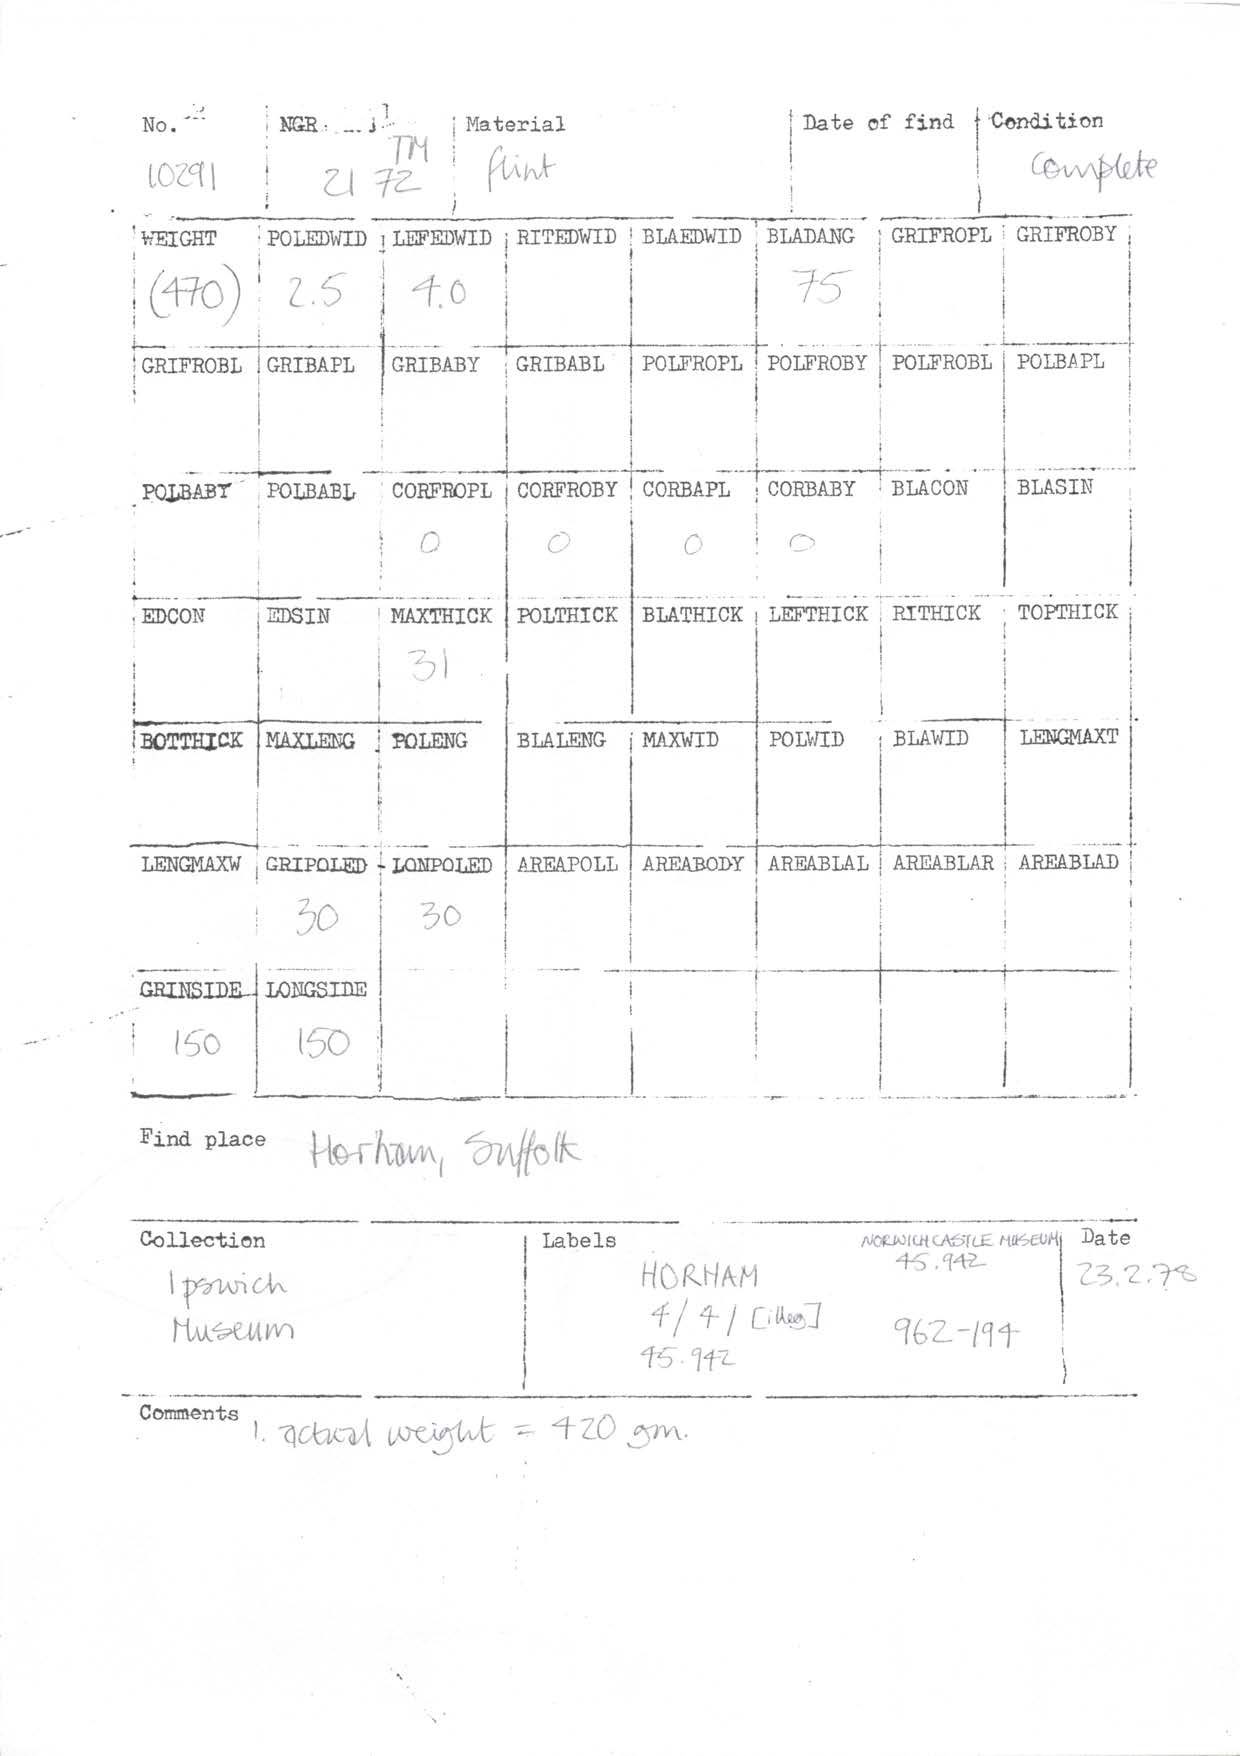 No. NGR Material Date of find Condition
10291 TM 21 72 flint complete
WEIGHT POLEDWID LEFEDWID RITEDWID BLAEDWID BLADANG GRIFROPL GRIFROBY
(470) 2.5 4.0 75
GRIFROBL GRIBAPL GRIBABY GRIBABL POLFROPL POLFROBY POLFROBL POLBAPL
POLBABY POLBABL CORFROPL CORFROBY CORBAPL CORBABY BLACON BLASIN
0 0 0 0
EDCON EDSIN MAXTHICK POLTHICK BLATHICK LEFTHICK RITHICK TOPTHICK
31
BOTTHICK MAXLENG POLENG BLALENG MAXWID POLWID BLAWID LENGMAXT
LENGMAXW GRIPOLED LONPOLED AREAPOLL AREABODY AREABLAL AREABLAR AREABLAD
30 30
GRINSIDE LONGSIDE
150 150
Find place Horham, Suffolk
Collection Labels NORWICH CASTLE MUSEUM Date
45.942
Ipswich HORHAM 23.2.78
Museum 4/4/[illeg] 962-194
45.942
Comments 1. actual weight = 420 gm.